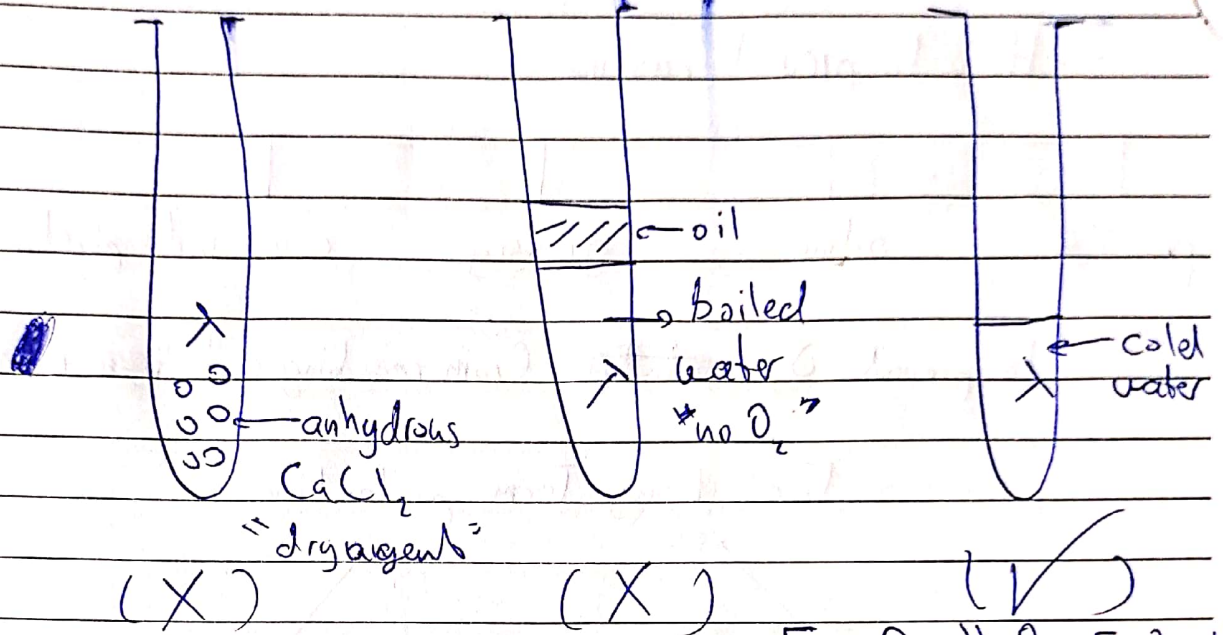 oil
boiled
water
"no O₂"
cold
water
anhydrous
CaCl₂
"dry agent"
(X) (X) (✓)